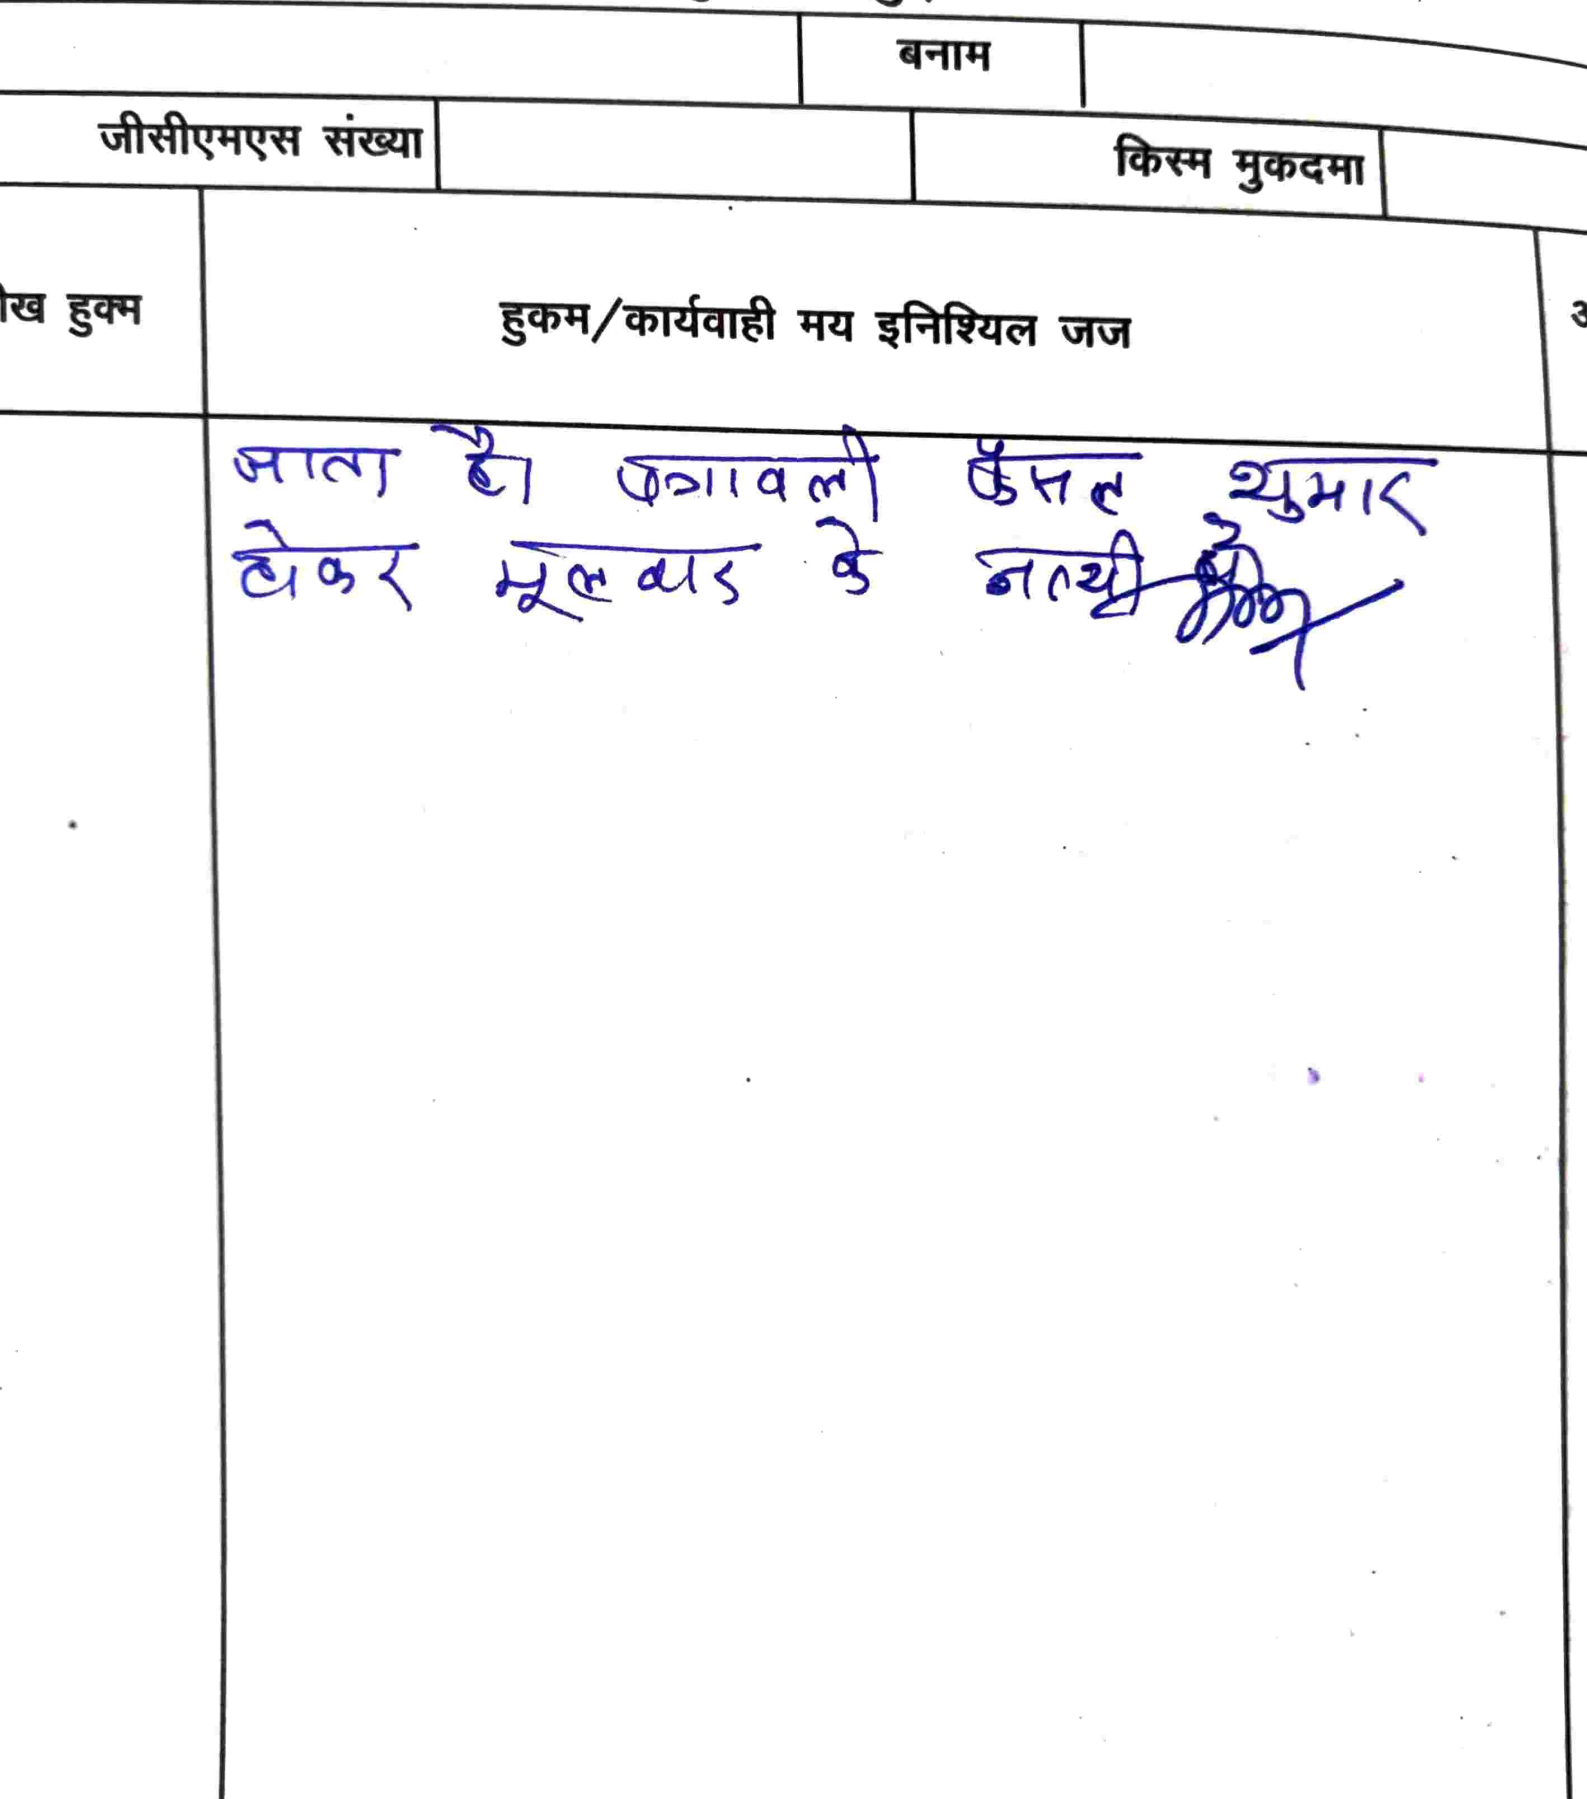 बनाम
जीसीएमएस संख्या
किस्म मुकदमा
हुक्म
हुकम/कार्यवाही मय इनिश्यिल जज
जाता है। पत्रावली फैसल शुमार
होकर मूल वाद के नत्थी हो